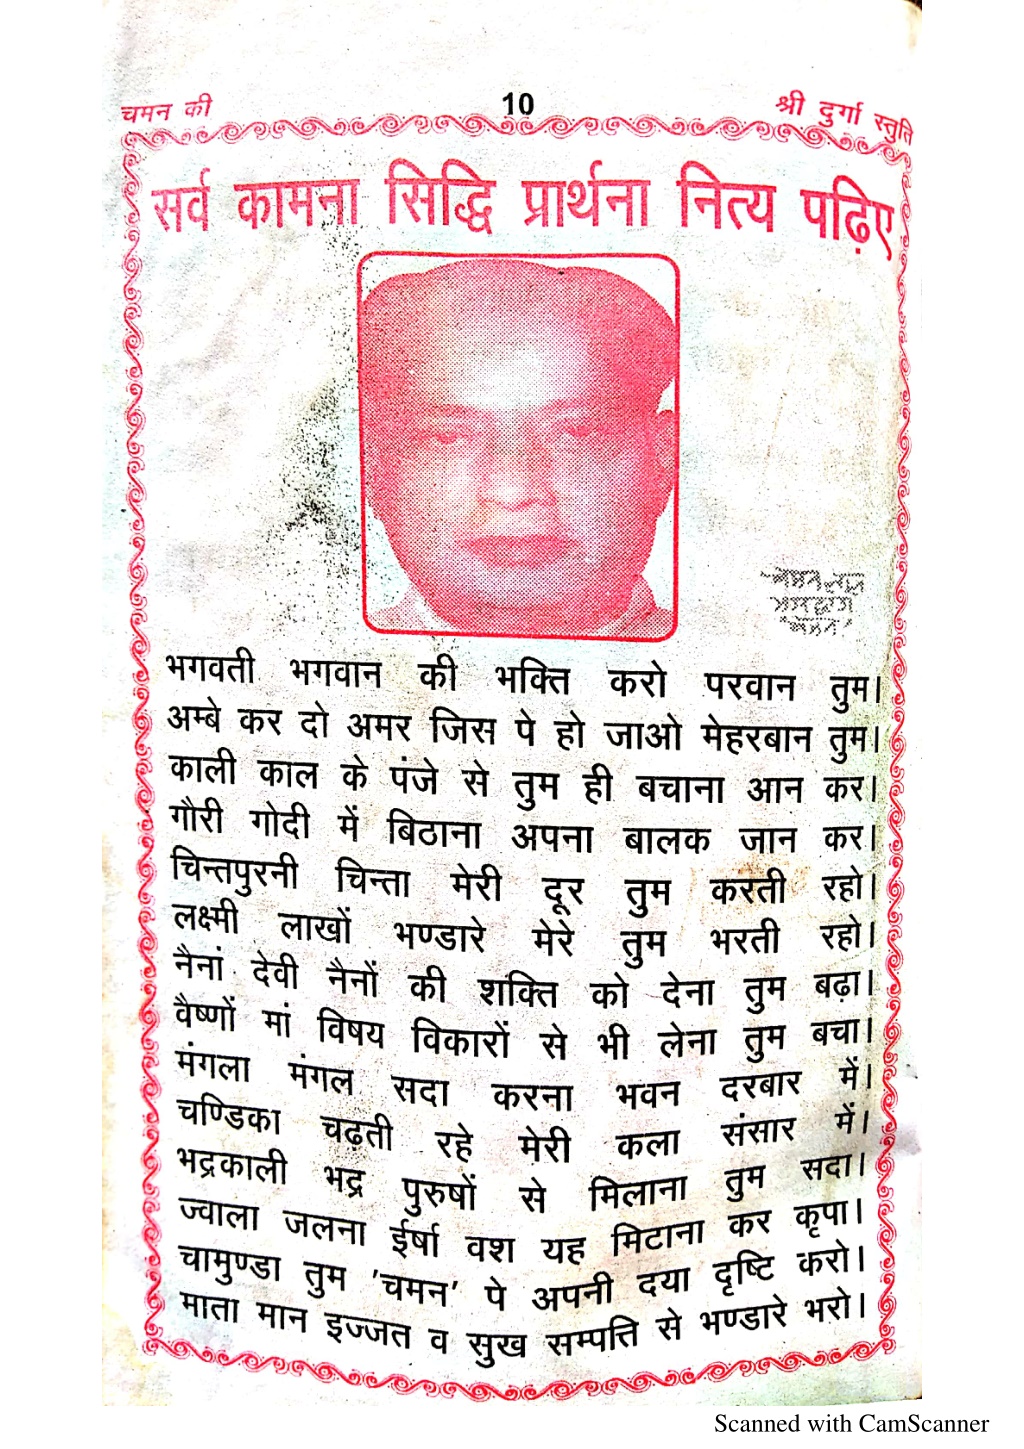 चमन की
10
श्री दुर्गा स्तुति
सर्व कामना सिद्धि प्रार्थना नित्य पढ़िए
भगवती भगवान की भक्ति करो परवान तुम।
अम्बे कर दो अमर जिस पे हो जाओ मेहरबान तुम।
काली काल के पंजे से तुम ही बचाना आन कर।
गौरी गोदी में बिठाना अपना बालक जान कर।
चिन्तपुरनी चिन्ता मेरी दूर तुम करती रहो।
लक्ष्मी लाखों भण्डारे मेरे तुम भरती रहो।
नैनां देवी नैनों की शक्ति को देना तुम बढ़ा।
वैष्णों मां विषय विकारों से भी लेना तुम बचा।
मंगला मंगल सदा करना भवन दरबार में।
चण्डिका चढ़ती रहे मेरी कला संसार में।
भद्रकाली भद्र पुरुषों से मिलाना तुम सदा।
ज्वाला जलना ईर्षा वश यह मिटाना कर कृपा।
चामुण्डा तुम 'चमन' पे अपनी दया दृष्टि करो।
माता मान इज्जत व सुख सम्पत्ति से भण्डारे भरो।
Scanned with CamScanner